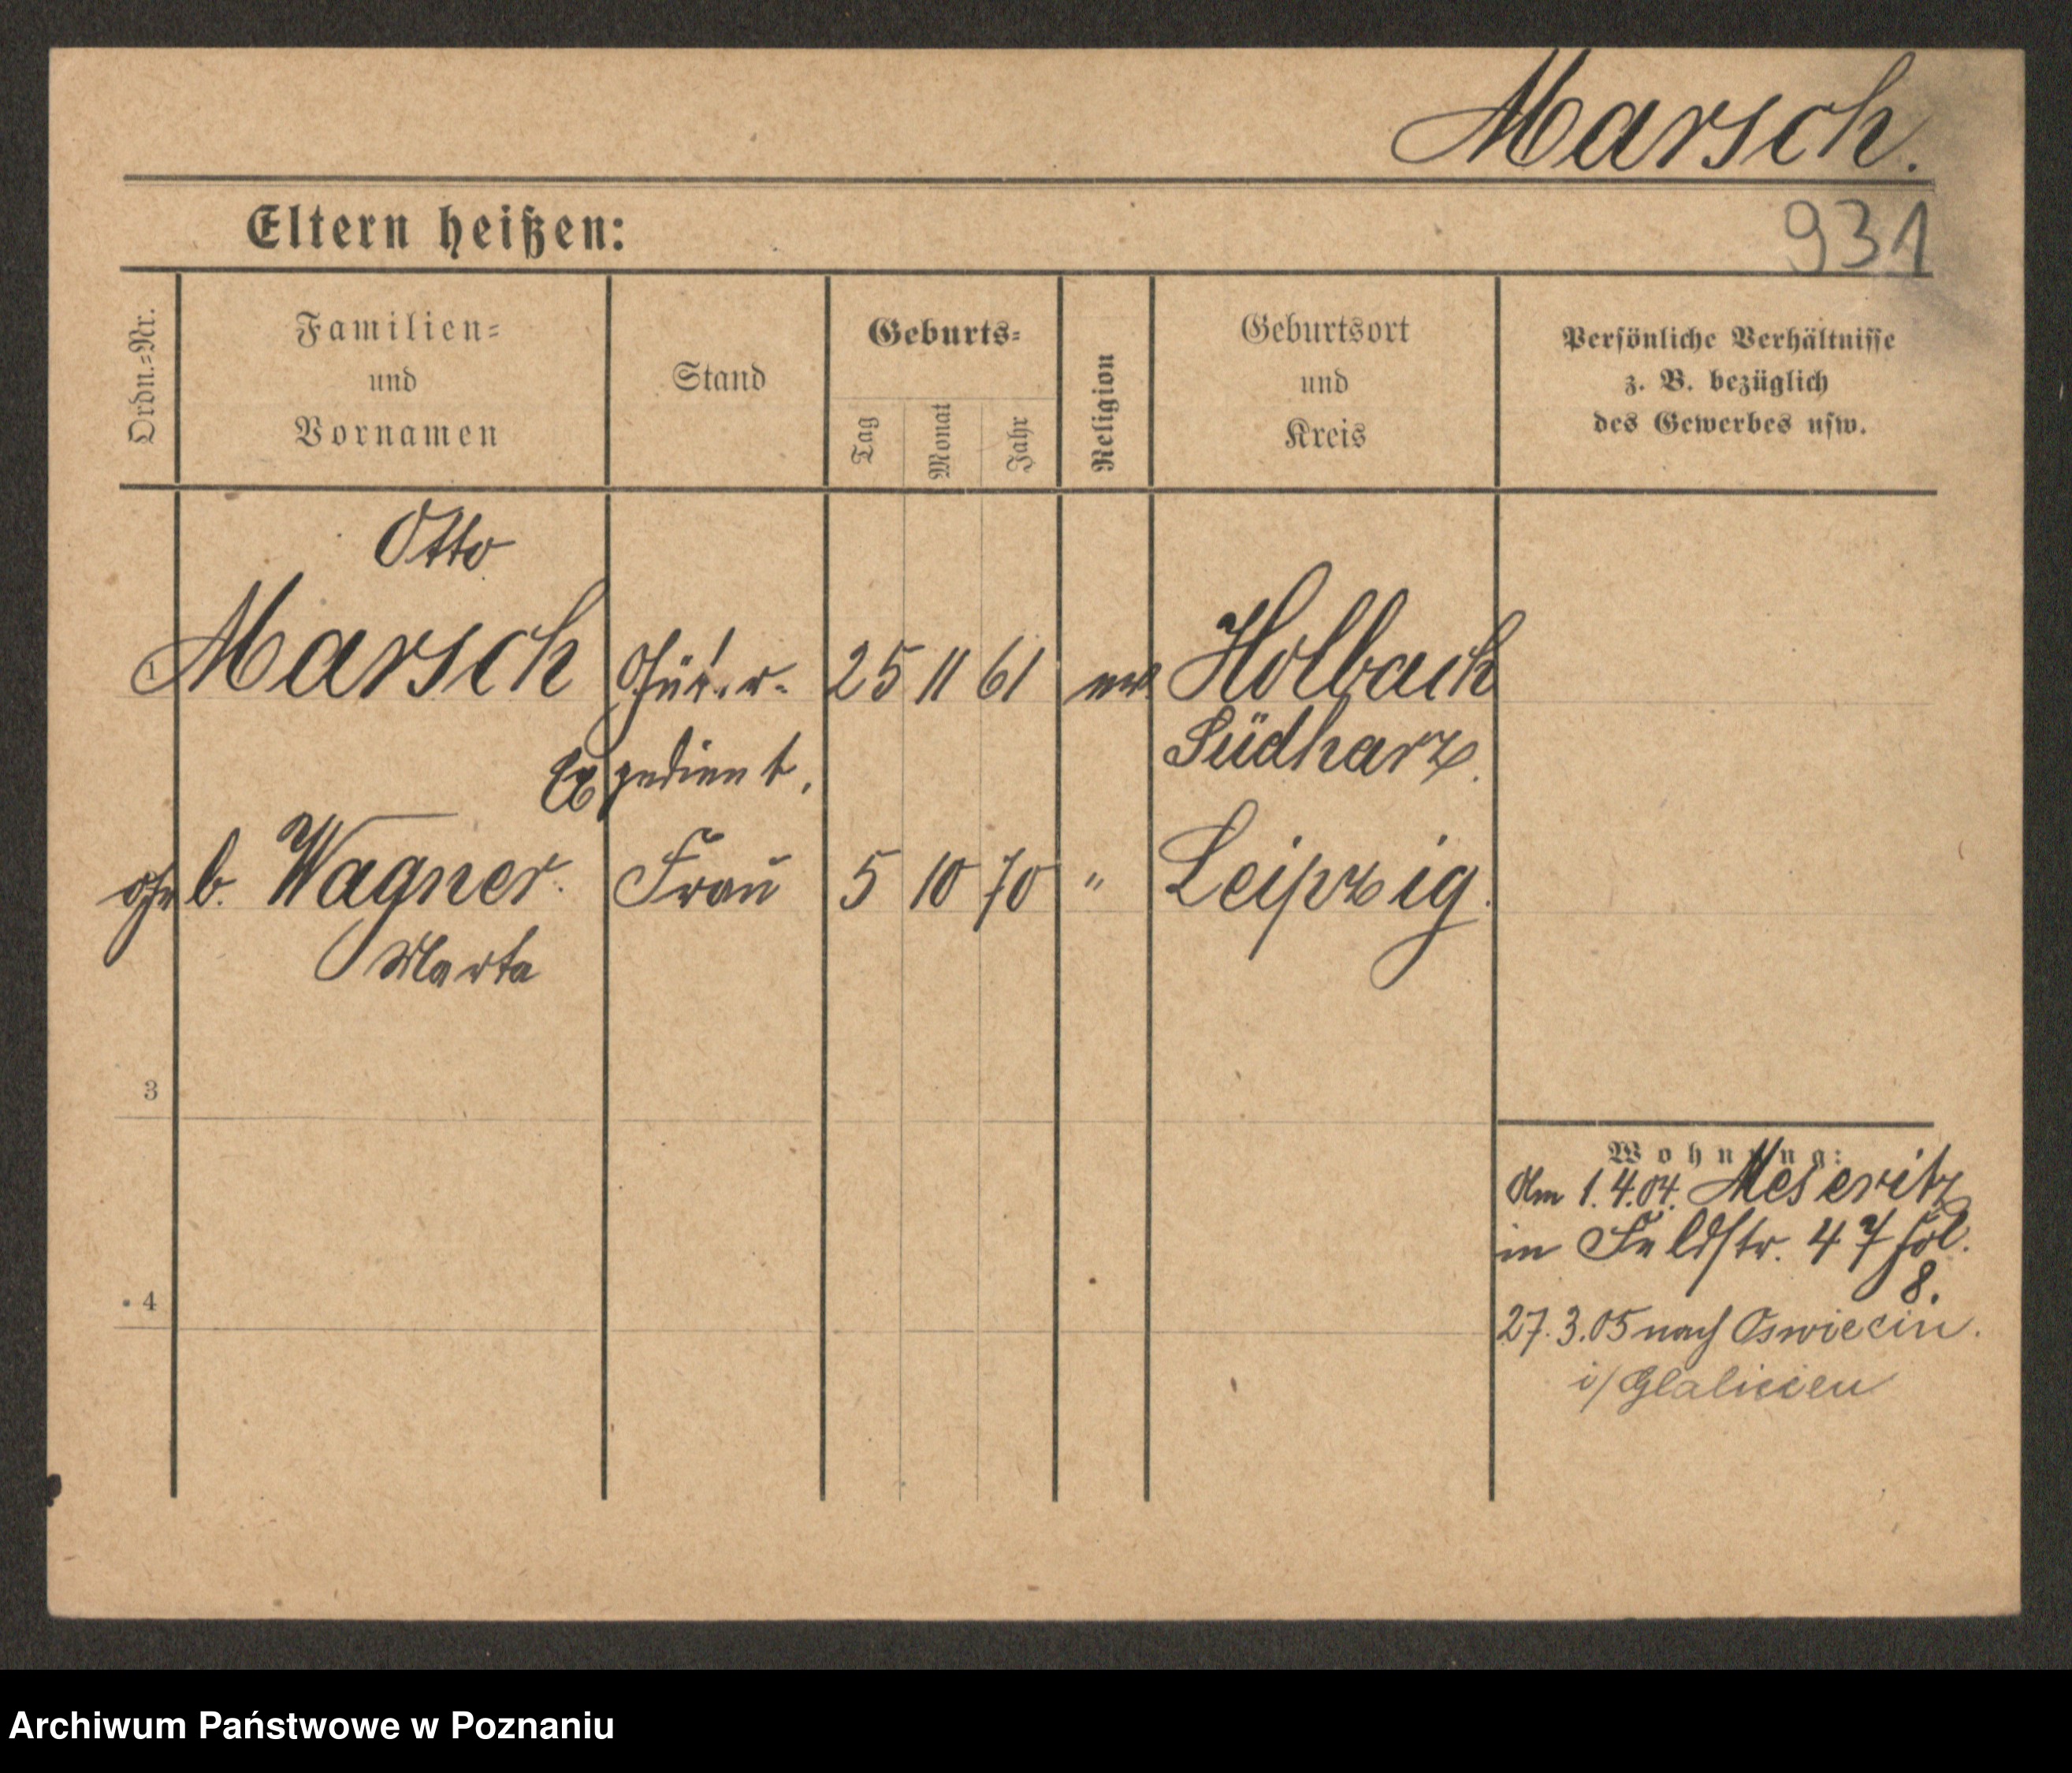 Marsch.
Eltern heißen:
931
Ordn.=Nr.
Familien=
und
Vornamen
Stand
Geburts=
Tag
Monat
Jahr
Religion
Geburtsort
und
Kreis
Persönliche Verhältnisse
z. B. bezüglich
des Gewerbes usw.
Otto
1 Marsch Güter- 25 11 61 ev Holbach
Expedient, Südharz.
geb. Wagner. Frau 5 10 70 " Leipzig.
Marta
3
4
Wohnung:
Am 1.4.04. Meseritz
in Feldstr. 47 fol.
8.
27.3.05 nach Oswiecin.
i/ Glalicien
Archiwum Państwowe w Poznaniu